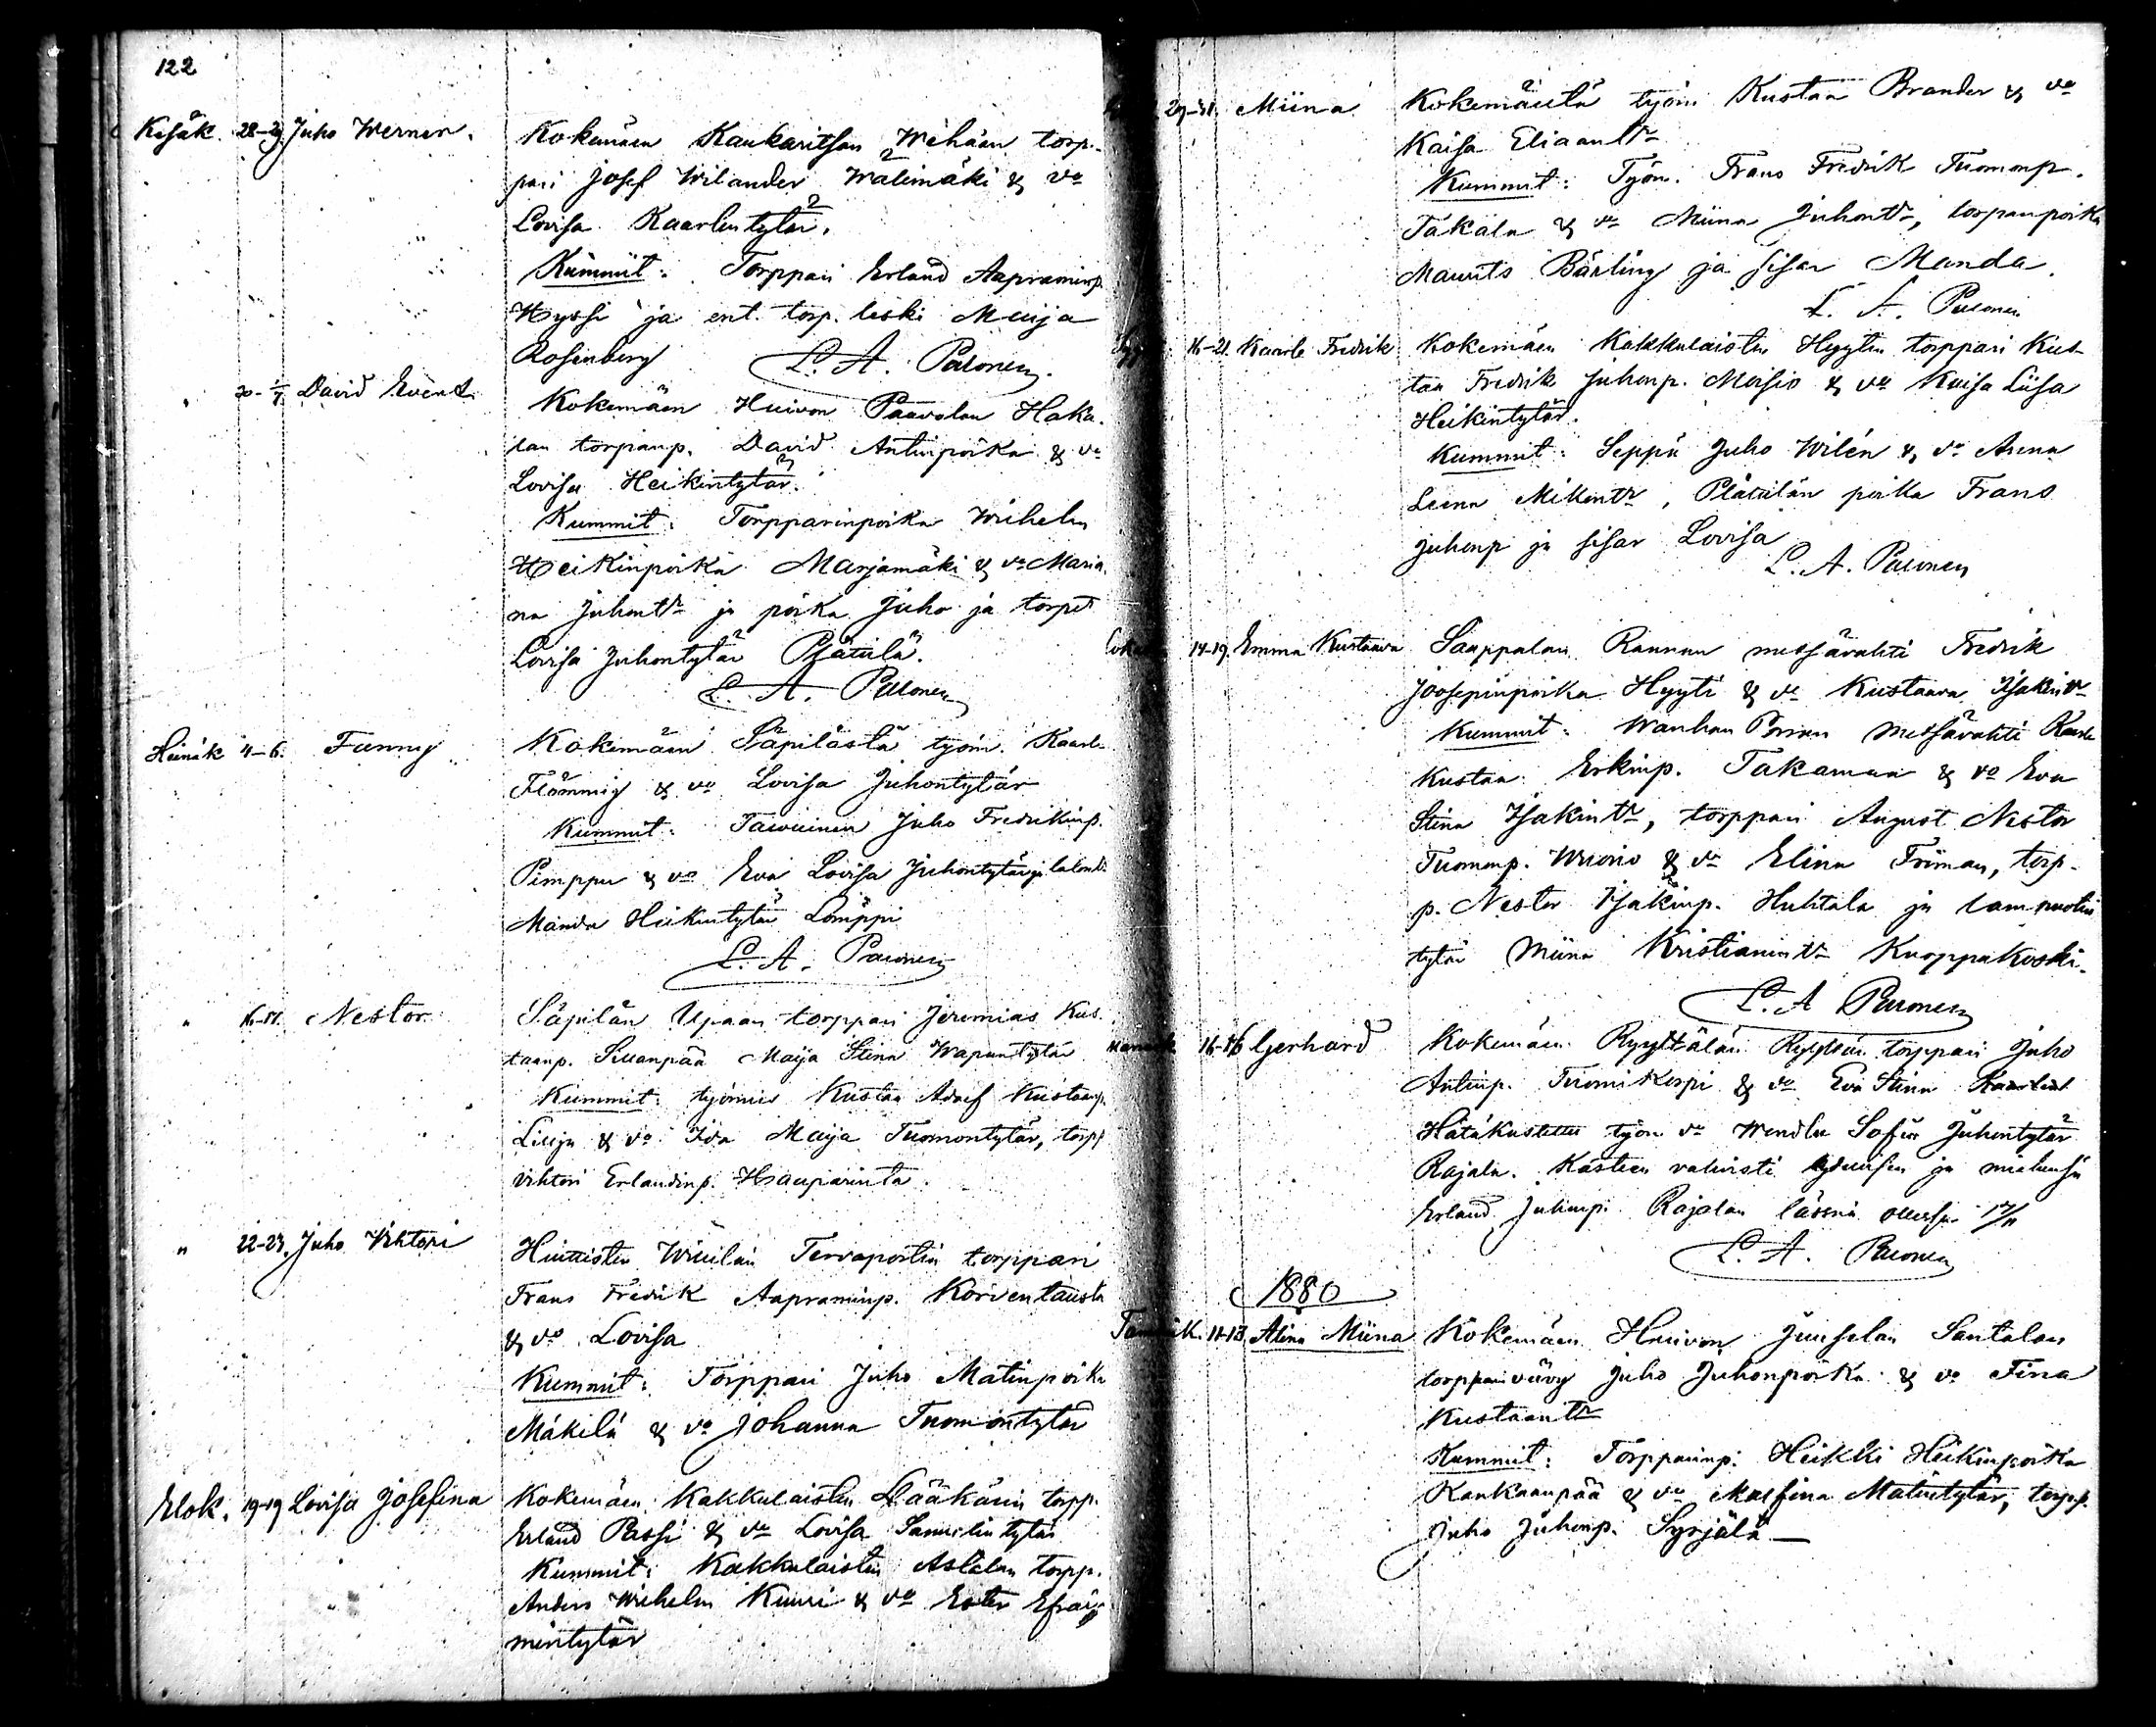 122
Kesäk. 28-29 Juho Werner. Kokemäen Kaukaritsan Wehään torp-
pari Josef Wilander Wälimäki & vo
Lovisa Kaarlentytär.
Kummit: Torppari Erland Aapraminp.
Hyssi ja ent. torp. leski Maija
Rosenberg L. A. Palonen.
" 30-1/7 David Evert. Kokemäen Huivon Paavolan Haka-
lan torpanp. David Antinpoika & vo
Lovisa Heikintytär.
Kummit: Torpparinpoika Wihelm
Heikinpoika Marjamäki & vo Maria-
na Juhontr ja poika Juho ja torpt
Lovisa Juhontytär Plätilä.
L. A. Palonen
Heinäk 4-6. Fanny Kokemäen Säpilästä työm. Kaarle
Flömmig & vo Lovisa Juhontytär
Kummit: Juho Fredrikinp.
Pimppu & vo Eva Lovisa Juhontytär ja
Manda Heikintytär Lomppi
L. A. Palonen
" 16-17. Nestor Säpilän Upaan torppari Jeremias Kus-
taanp. Sillanpää Maija Stina Wapuntytär
Kummit: työmies Kustaa Adolf Kustaanp.
Lilija & vo Ida Maija Tuomontytär, torpp
Vihtori Erlandinp. Haaparinta.
" 22-23. Juho Vihtori Hintiisten Wiikilän Tervaportin torppari
Frans Fredrik Aapraminp. Korventausta
& vo Lovisa
Kummit: Torppari Juho Matinpoika
Mäkilä & vo Johanna Tuomontytär
Elok. 19-19 Lovisa Josefina Kokemäen Kakkulaisten Lääkärin torpp.
Erland Passi & vo Lovisa Samulintytär
Kummit: Kakkulaisten Astalan torpp.
Anders Wihelm Kuusi & vo Ester Efrai-
mintytär
29-31. Miina Kokemäeltä työm Kustaa Brander & vo
Kaisa Eliaantr
Kummit: Työm. Frans Fredrik Tuomonp.
Takala & vo Miina Juhontr, torpanpoika
Maurits Bärling ja sisar Manda.
L. A. Palonen
16-21. Kaarle Fredrik Kokemäen Kakkulaisten Hyytin torppari Kus-
taa Fredrik Juhonp. Moisio & vo Kaisa Liisa
Heikintytär.
Kummit: Seppä Juho Wilén & vo Anna
Leena Mikintr, Plätilän poika Frans
Juhonp ja sisar Lovisa
L. A. Palonen
14-19. Emma Kustaava Saappalan Rannan metsävahti Fredrik
Joosepinpoika Hyyti & vo Kustaava Isakintr
Kummit: Wanhan metsävahti Kaarle
Kustaa Erkinp. Takamaa & vo Eva
Stina Isakintr, torppari August Nestor
Tuomonp. Wuorio & vo Elina Friman, torp-
p. Nestor Isakinp. Huhtala ja lampuotin
tytär Miina Kristianintr Kuoppakoski.
L. A Palonen
16-16 Gerhard Kokemäen Ryyttälän torppari Juho
Antinp. Tuomikorpi & vo Eva Stina
Hätäkastettu työm vo Wendla Sofia Juhontytär
Rajala. Kasteen vahvisti ja miehensä
Erland Juhonp. Rajalan läsnä ollessa 17/11
L. A. Palonen
1880
Tammik. 11-13. Alina Miina Kokemäen Huivon Juuselan Santalan
torpparivävy Juho Juhonpoika & vo Fina
Kustaantr
Kummit: Torpparinp. Heikki Heikinpoika
Kankaanpää & vo Malfina Matintytär, torpp.
Juho Juhonp. Syrjälä —